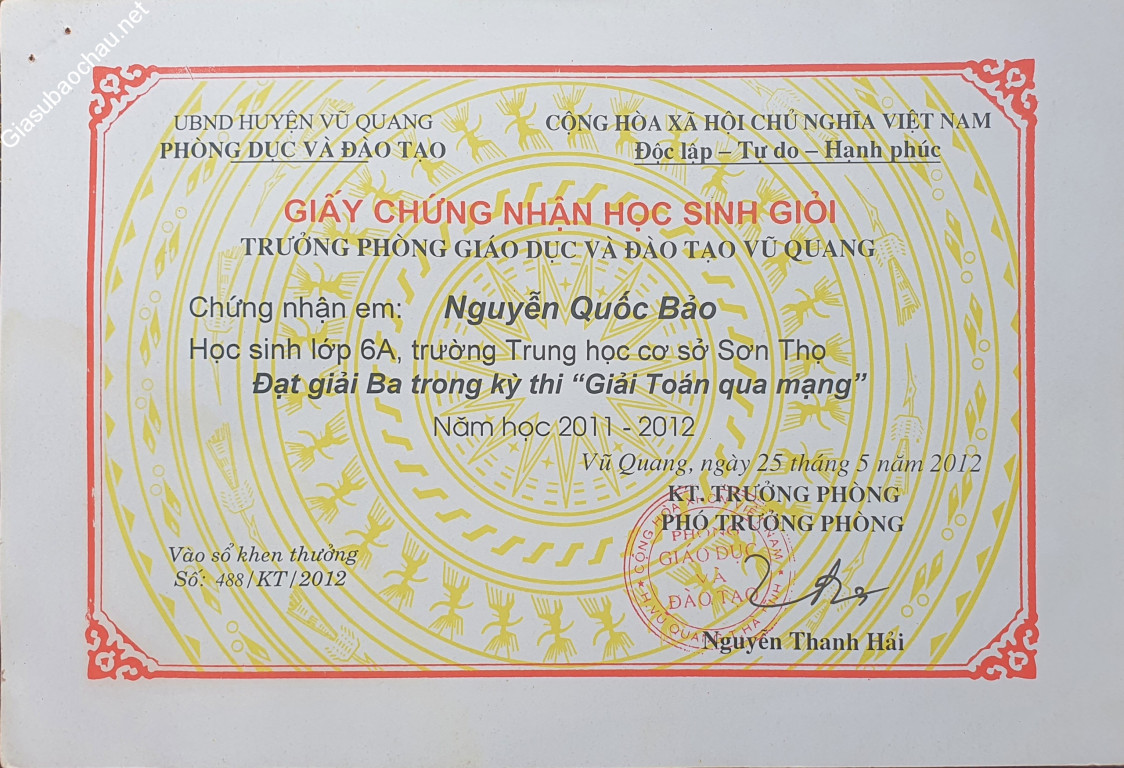 Giasubaochau.net
UBND HUYỆN VŨ QUANG
PHÒNG DỤC VÀ ĐÀO TẠO
CỘNG HÒA XÃ HỘI CHỦ NGHĨA VIỆT NAM
Độc lập – Tự do – Hạnh phúc
GIẤY CHỨNG NHẬN HỌC SINH GIỎI
TRƯỞNG PHÒNG GIÁO DỤC VÀ ĐÀO TẠO VŨ QUANG
Chứng nhận em: Nguyễn Quốc Bảo
Học sinh lớp 6A, trường Trung học cơ sở Sơn Thọ
Đạt giải Ba trong kỳ thi “Giải Toán qua mạng”
Năm học 2011 - 2012
Vũ Quang, ngày 25 tháng 5 năm 2012
KT. TRƯỞNG PHÒNG
PHÓ TRƯỞNG PHÒNG
PHÒNG
GIÁO DỤC
VÀ
ĐÀO TẠO
Vào sổ khen thưởng
Số: 488/KT/2012
Nguyễn Thanh Hải